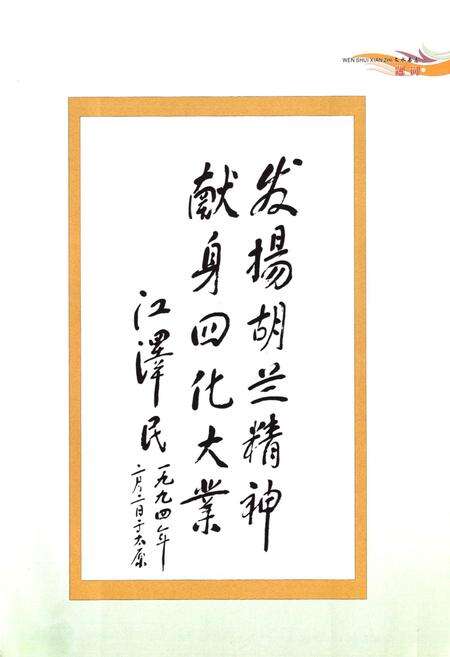 WEN SHUI XIAN ZHI 文水县志
题词
发揚胡兰精神
献身四化大業
江澤民
一九九四年
二月二日于太原